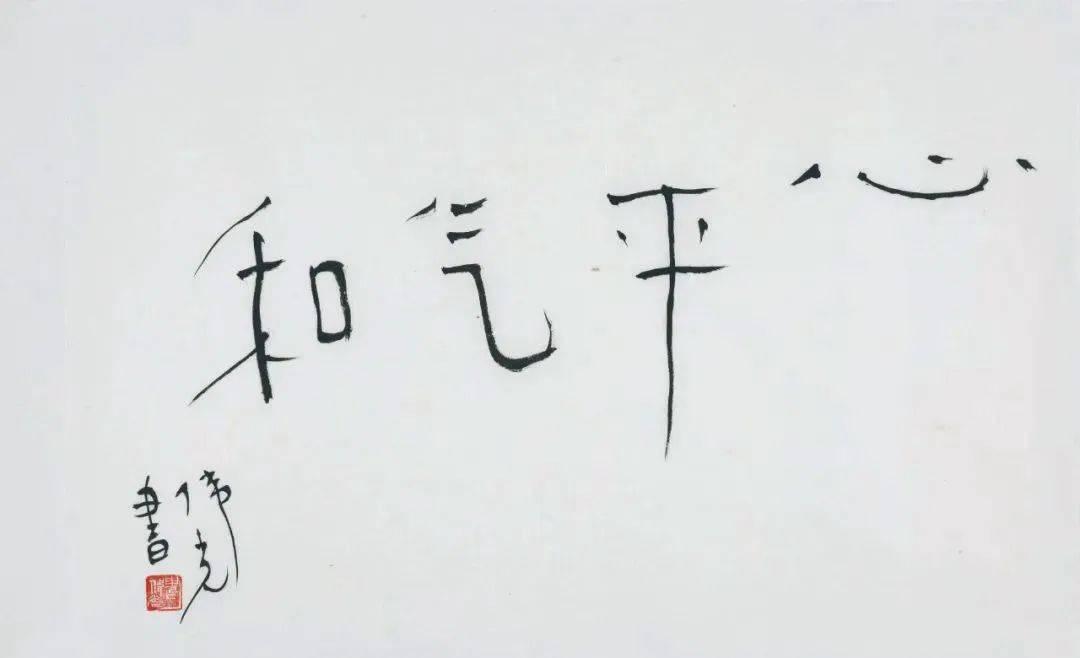 心平气和
伟光
書